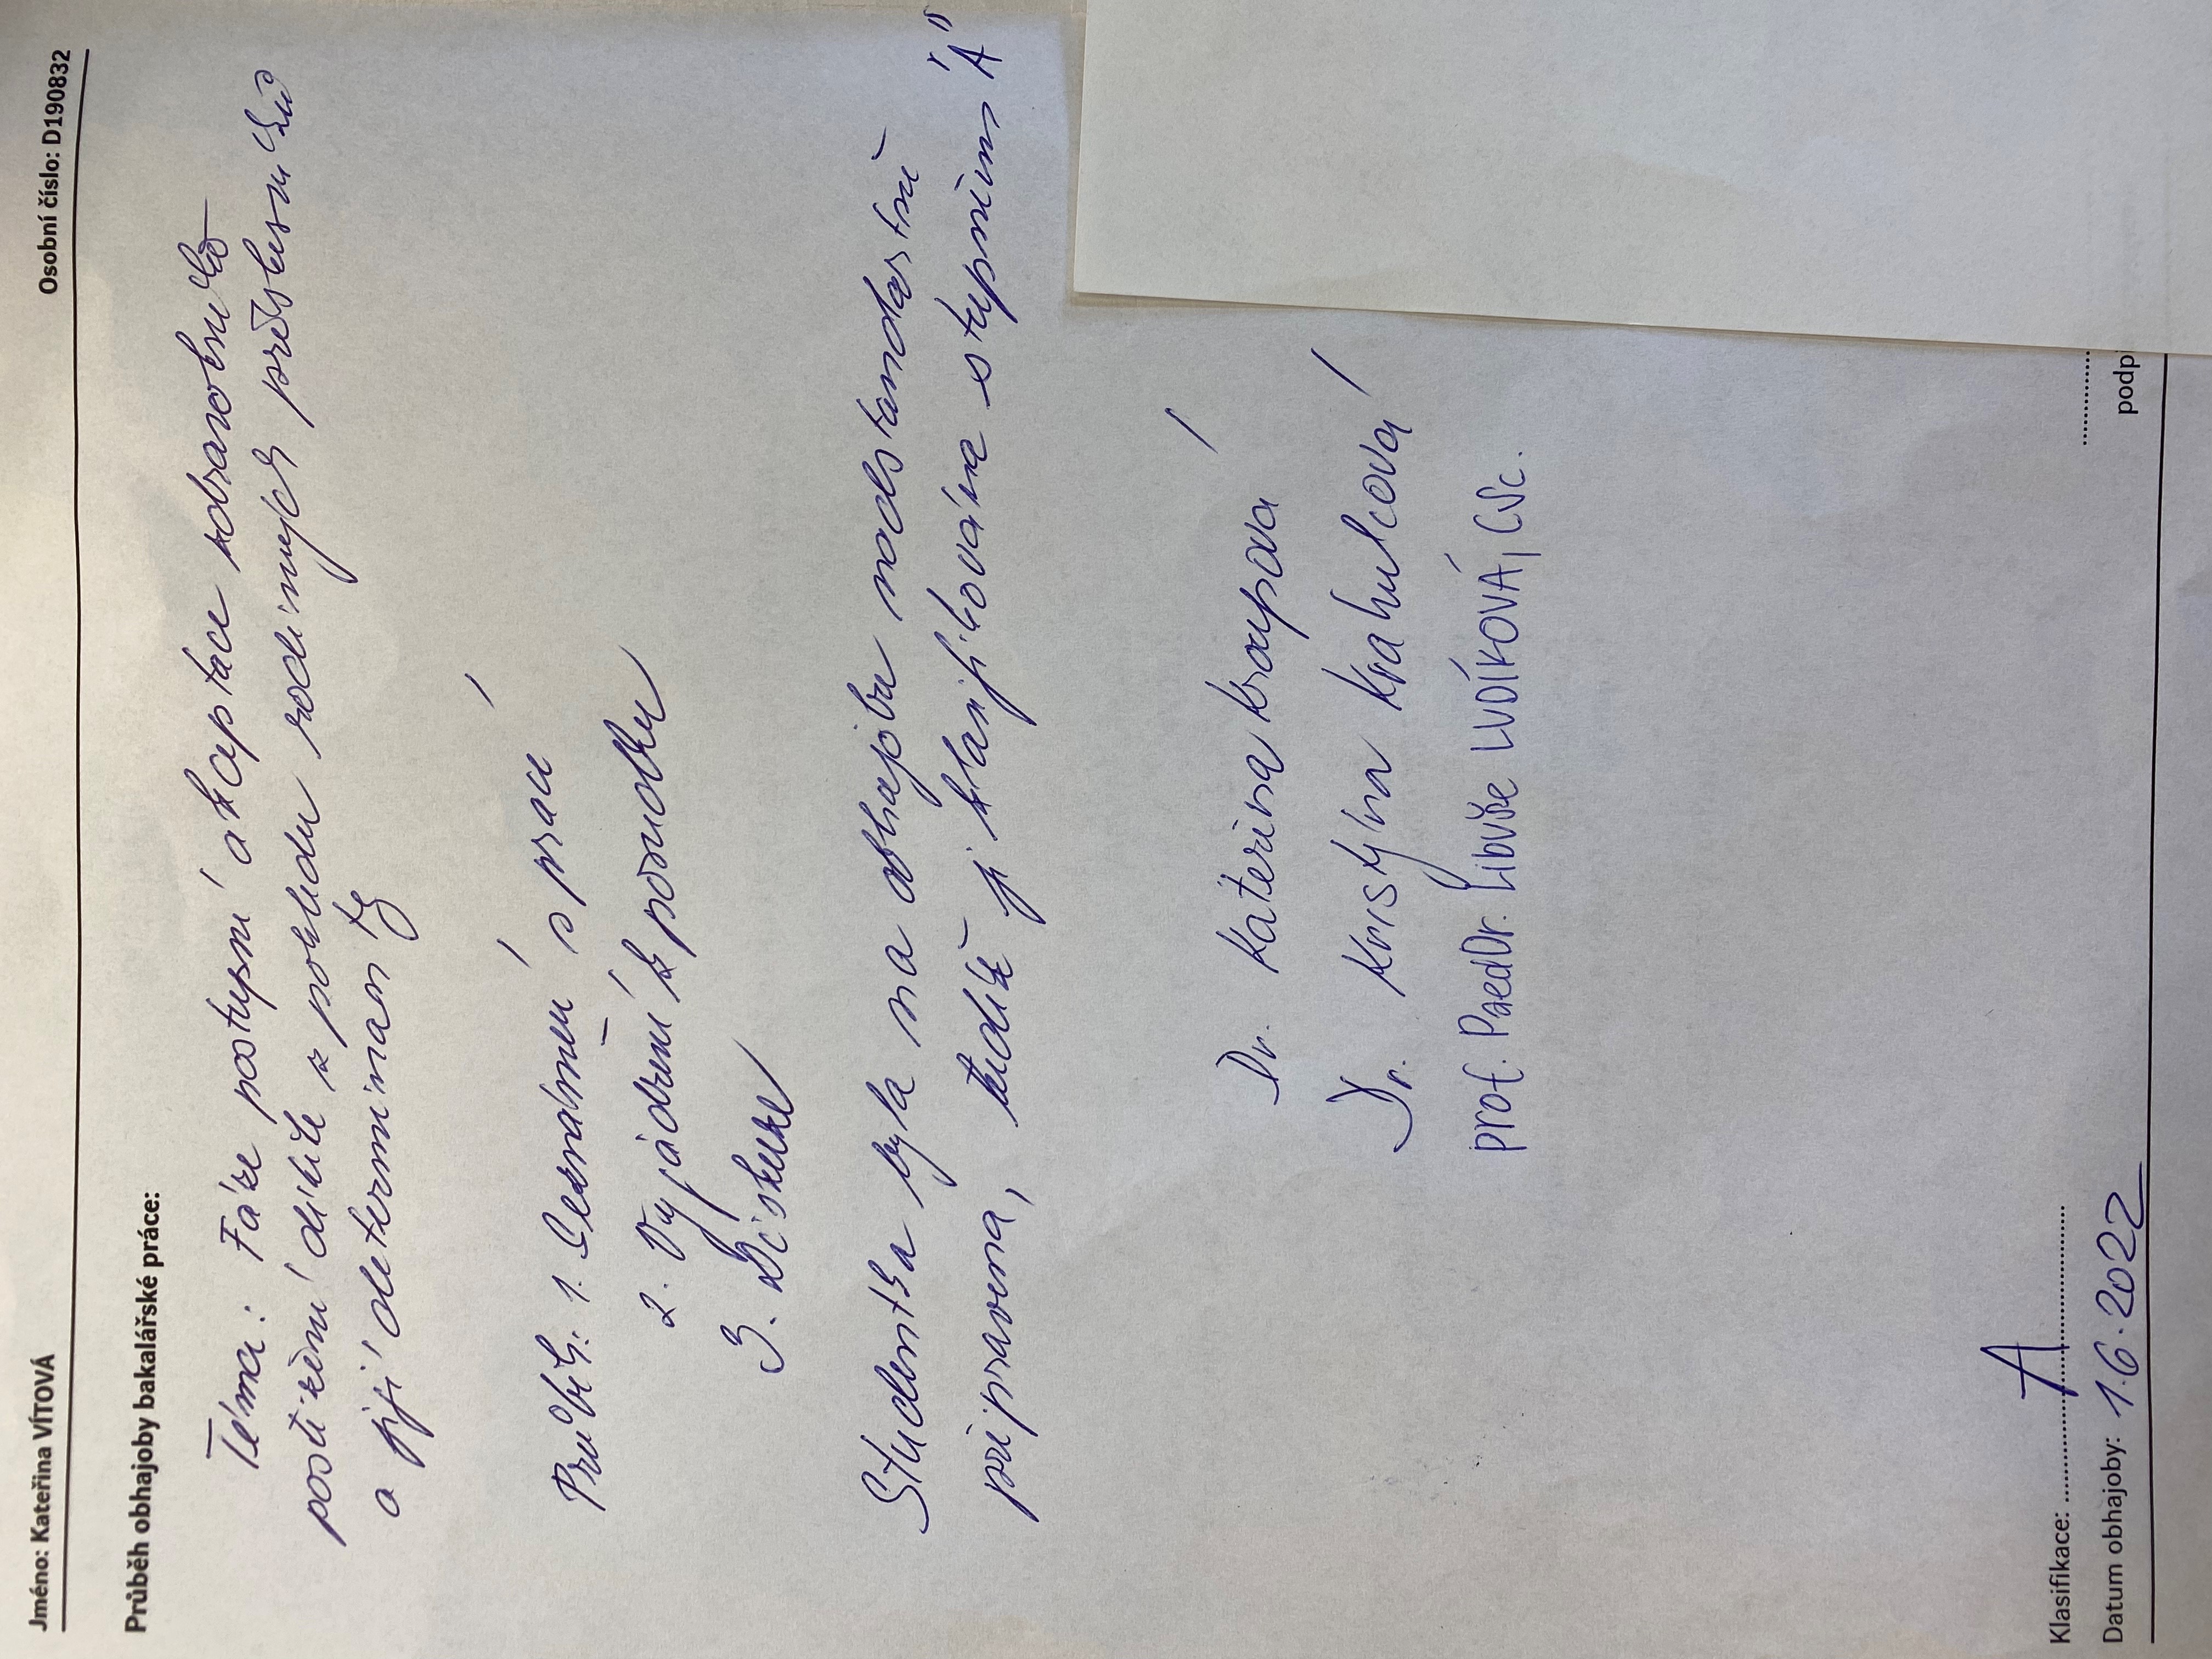 Jméno: Kateřina VÍTOVÁ Osobní číslo: D190832
Průběh obhajoby bakalářské práce:
Téma: Fáze postupné akceptace zdravotního
postižení dítěte z pohledu rodinných příslušníků
a její determinanty
Průběh: 1. Seznámení s prací
2. Vyjádření k posudku
3. Diskuze
Studentka byla na obhajobu nadstandardně
připravena, tudíž ji klasifikována stupněm "A"
Dr. Kateřina Kroupová
Dr. Kristýna Krahulcová
prof. PaedDr. Libuše LUDÍKOVÁ, CSc.
Klasifikace: A
Datum obhajoby: 1.6.2022 podpi